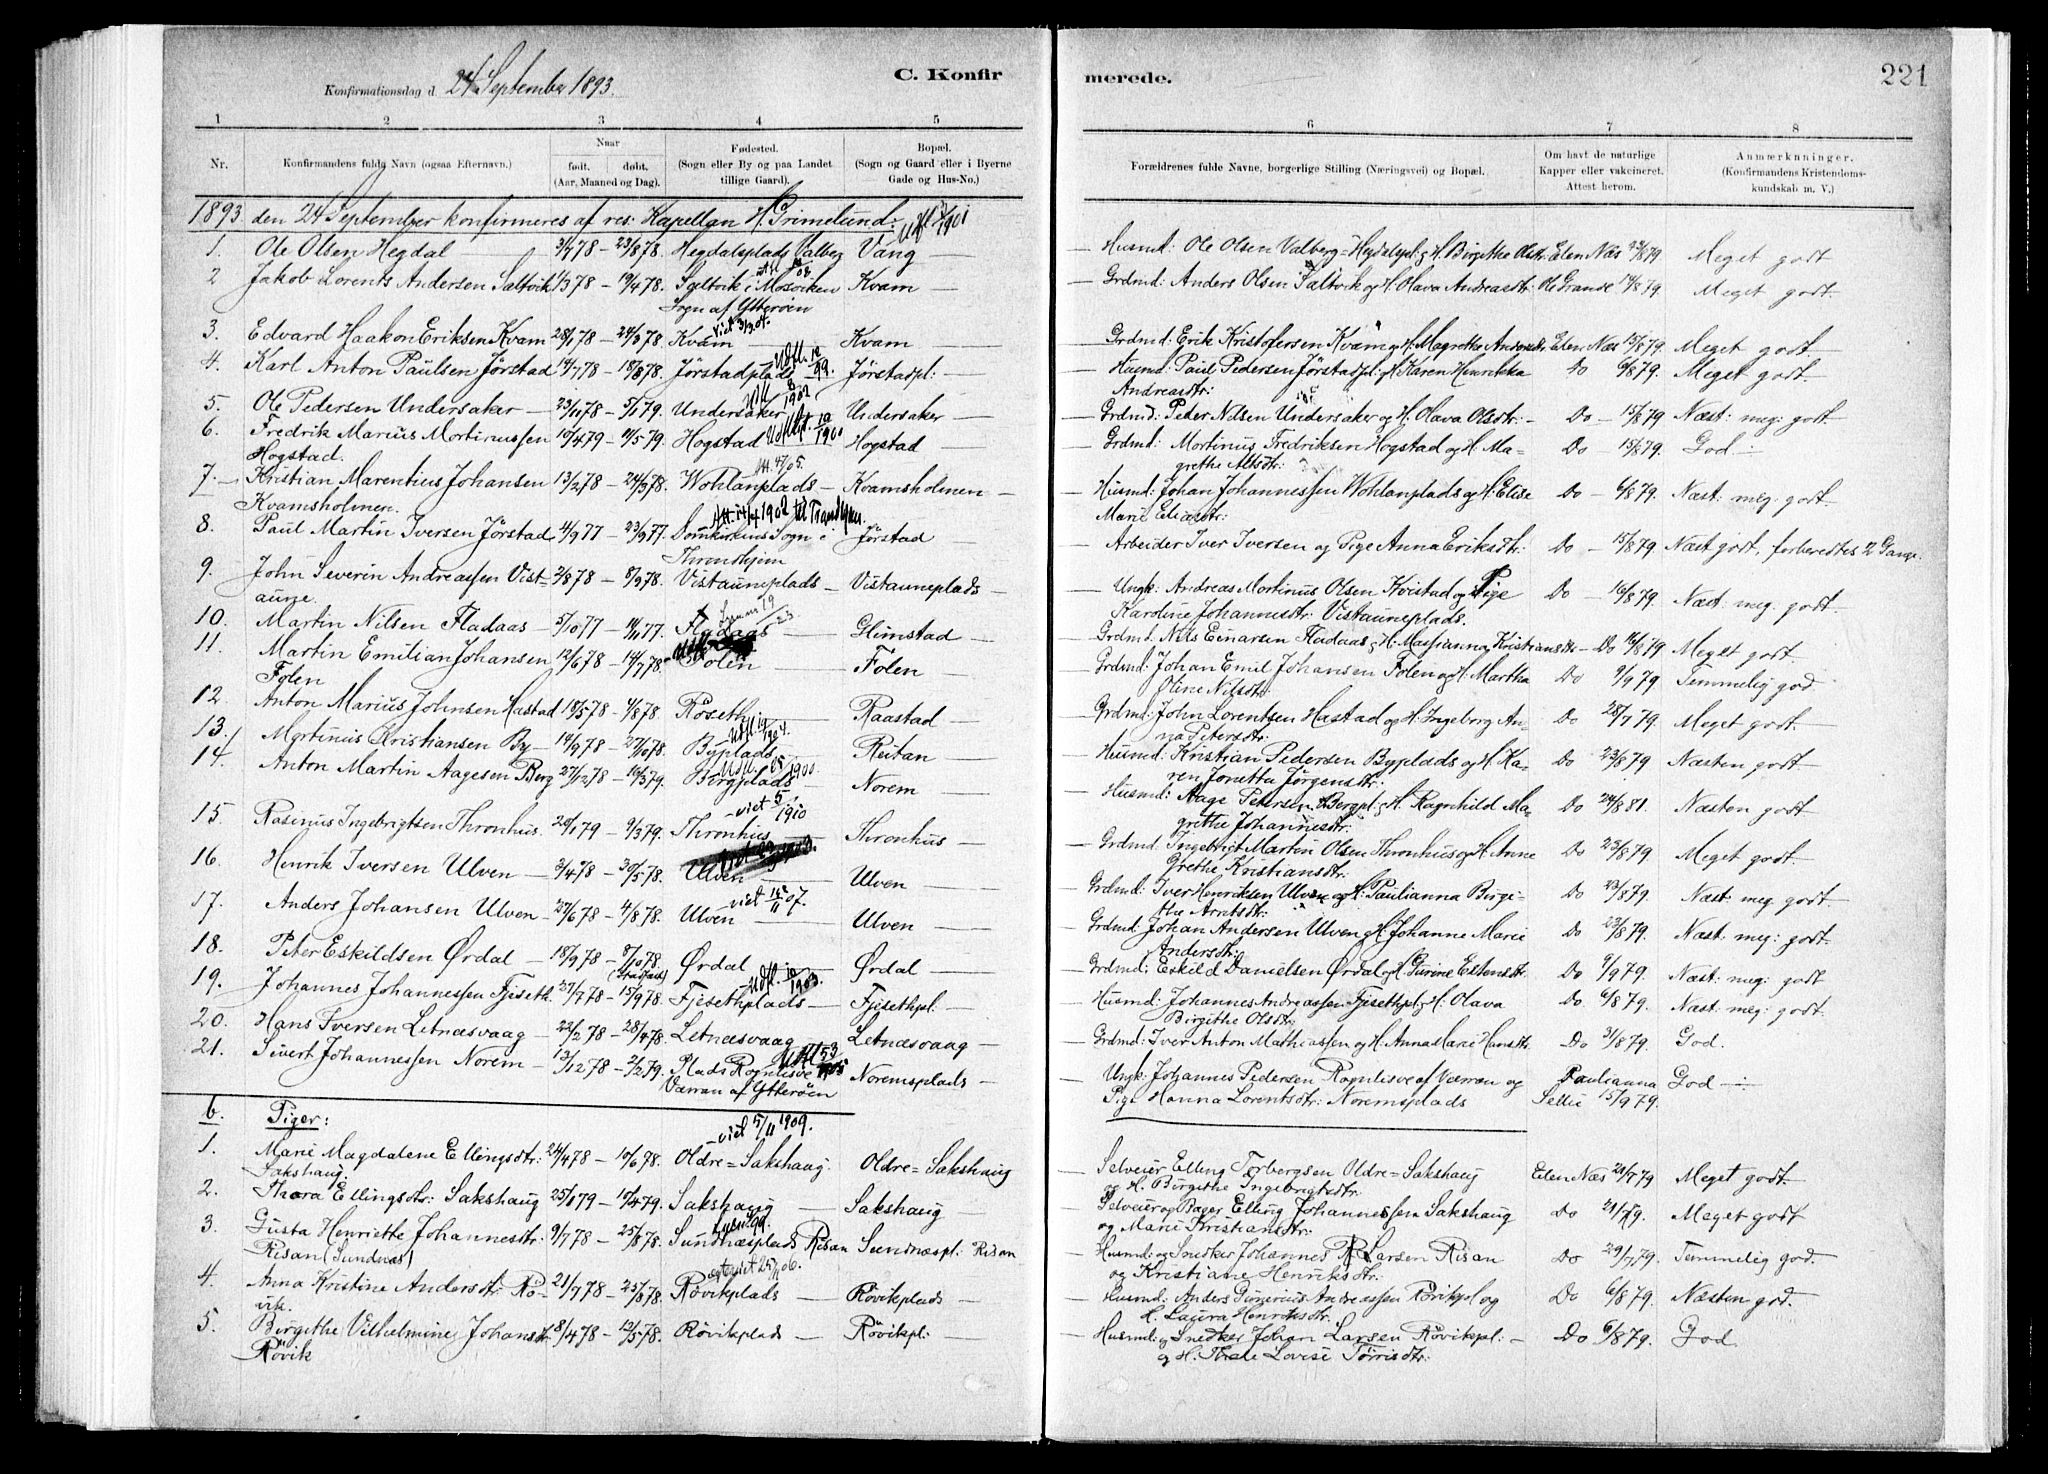 Konfirmationsdag d. 24 September 1893.
C. Konfir
merede.
221
1 2 3 4 5 6 7 8
Nr.
Konfirmandens fulde Navn (ogsaa Efternavn.)
Naar
født. døbt.
(Aar, Maaned og Dag).
Fødested.
(Sogn eller By og paa Landet
tillige Gaard).
Bopæl.
(Sogn og Gaard eller i Byerne
Gade og Hus-No.)
Forældrenes fulde Navne, borgerlige Stilling (Næringsvei) og Bopæl.
Om havt de naturlige
Kapper eller vakcineret.
Attest herom.
Anmærkninger.
(Konfirmandens Kristendoms-
kundskab m. V.)
1893 den 24 September konfirmeres af res: Kapellan H. Grimelund:
1. Ole Olsen Hegdal 3/4 78 – 23/8 78. Hegdalsplads Valberg Vang — Husmd: Ole Olsen Valberg-Hegdalspl: & H. Birgithe Olsdtr. Elen Næs 23/8 79 Meget godt
2 Jakob Lorents Andersen Saltvik 1/3 78 – 19/4 78. Saltvik i Mosviken Kvam — Grdmd: Anders Olsen Saltvik og H. Olava Andreasdtr: Ole Grande 14/8 79. Meget godt.
Sogn af Ytterøen
viet 3/3 04.
3. Edvard Haakon Eriksen Kvam 28/1 78 – 24/3 78. Kvam — Kvam — Grdmd: Erik Kristofersen Kvam og H. Magrethe Andersdtr. Elen Næs 15/8 79. Meget godt
4. Karl Anton Paulsen Jørstad 14/7 78 – 18/8 78. Jørstadplads Jørstadpl: — Husmd: Paul Pedersen Jørstadpl: & H. Karen Henrikka Do 6/8 79. Meget godt.
Andreasdtr:
5. Ole Pedersen Undersaker — 23/11 78 – 5/1 79. Undersaker Undersaker — Grdmd: Peder Nilsen Undersaker og H. Olava Olsdtr: – Do – 15/8 79 Næst: meg: godt.
6. Fredrik Marius Mortinussen 10/4 79 – 11/5 79. Hogstad Hogstad — Grdmd: Mortinus Fredriksen Hogstad og H. Ma- Do – 15/8 79. God
Hogstad.
grethe Altsdtr:
7. Kristian Marentius Johansen 13/2 78 – 24/3 78. Wohlanplads – Kvamsholmen — Husmd: Johan Johannessen Wohlanplads og H. Elise Do – 6/8 79. Næst: meg: godt.
Kvamsholmen.
Marie Eliasdtr:
8. Paul Martin Iversen Jørstad 4/9 77 – 23/9 77. Domkirkens Sogn i Jørstad — Arbeider Iver Iversen og Pige Anna Eriksdtr: Do – 15/8 79 Næst godt, forberedtes 2 Gange.
Throndhjem
9. John Severin Andreassen Vist- 2/8 78 – 8/9 78. Vistauneplads – Vistauneplads — Ungk: Andreas Mortinus Olsen Kvistad og Pige Do – 16/8 79. Næst: meg: godt.
aune.
Karoline Johannesdtr: Vistauneplads.
10. Martin Nilsen Fladaas — 5/10 77 – 11/11 77. Fladaas — Glimstad — Grdmd: Nils Einarsen Fladaas & H. Massianna Kristiansdtr – Do 16/8 79 Meget godt.
11. Martin Emilian Johansen 12/6 78 – 14/7 78. Folen — Folen — Grdmd: Johan Emil Johansen Folen og H. Martha Do 9/9 79 Temmelig god
Folen
Oline Nilsdtr:
12. Anton Marius Johnsen Hastad 18/5 78 – 4/8 78. Røseth — Raastad — Grdmd: John Lorentsen Hastad og H. Ingeborg An- Do 28/7 79. Meget godt.
na Petersdtr:
13. Martinus Kristiansen By — 19/9 78 – 27/10 78. Byplads — Reitan — Husmd: Kristian Pedersen Byplads og H. Ka- Do 23/8 79 Næsten godt
ren Jonetta Jørgensdtr:
14. Anton Martin Aagesen Berg 27/12 78 – 16/3 79. Bergplads — Norem — Husmd: Aage Petersen Bergpl: & H. Ragnhild Ma- Do 24/8 81. Næsten godt.
grethe Johannesdtr:
viet 5/1 1910
15. Rasinus Ingebrigtsen Thronhus. 20/1 79 – 9/3 79. Thronhus Thronhus — Grdmd: Ingebrigt Martin Olsen Thronhus og H. Anne Do 23/8 79. Meget godt.
Grethe Kristiansdtr:
16. Henrik Iversen Ulven — 3/4 78 – 30/5 78. Ulven — Ulven — Grdmd: Iver Henriksen Ulven og H. Paulianna Birgi- Do 23/8 79. Næst: meg: godt
the Arntsdtr:
17. Anders Johansen Ulven – 27/6 78 – 4/8 78. Ulven — Ulven — Grdmd: Johan Andersen Ulven & H. Johanne Marie Do 23/8 79. Næst: meg: godt.
Andersdtr:
18. Peter Eskildsen Ørdal — 18/9 78 – 8/10 78. Ørdal — Ørdal — Grdmd: Eskild Danielsen Ørdal & H. Gurine Estensdtr Do 9/9 79. Næst: meg: godt
19. Johannes Johannessen Fjeseth. 27/7 78 – 15/9 78. Fjesethplads — Fjesethpl: — Husmd: Johannes Andreassen Fjesethpl: & H. Olava Do. 6/8 79. Næst meg: godt.
Birgithe Olsdtr:
20. Hans Iversen Letnæsvaag — 22/2 78 – 28/4 78. Letnæsvaag Letnæsvaag — Grdmd: Iver Anton Mathiassen og H. Anna Marie Hansdtr. Do 31/8 79. God.
21. Sivert Johannessen Norem — 13/12 78 – 2/2 79. Plads Rognlisve Noremsplads — Ungk: Johannes Pedersen Rognlisve af Værran og Paulianna God
Værran af Ytterøen
Pige Hanna Lorentsdtr: Noremsplads Sellie 15/9 79.
b. Piger:
viet 5/11 1909.
1. Marie Magdalene Ellingsdtr: 24/4 78 – 10/6 78. Oldre=Sakshaug. Oldre=Sakshaug Selveier Elling Torbergsen Oldre=Sakshaug Elen Næs 28/7 79 Meget godt.
Sakshaug.
og H. Birgithe Ingebrigtsdtr.
2. Thora Ellingsdtr: Sakshaug 25/1 79 – 10/4 79. Sakshaug — Sakshaug — Selveier og Bager Elling Johannessen Sakshaug Do 21/7 79. Meget godt
og Marie Kristiansdtr:
3. Gusta Henriette Johannesdtr: 9/7 78 – 25/8 78. Sundnæsplads Risan Sundnæspl: Risan Husmd: og Snedker Johannes Larsen Risan Do 29/7 79. Temmelig god.
Risan (Sundnæs)
og Kristiane Henriksdtr:
4. Anna Kristine Andersdtr: Rö- 21/7 78 – 25/8 78. Rövikplads — Rövikplads — Husmd: Anders Gunerius Andreassen Rövikpl og Do 6/8 79. Næsten god.
vik.
H. Laura Henriksdtr:
5. Birgithe Vilhelmine Johansdtr 8/4 78 – 12/5 78. Rövikplads — Rövikpl: — Husmd: og Snedker Johan Larsen Rövikpl: – Do 6/8 79. God
Rövik
og H. Thale Lovise Törrisdtr: